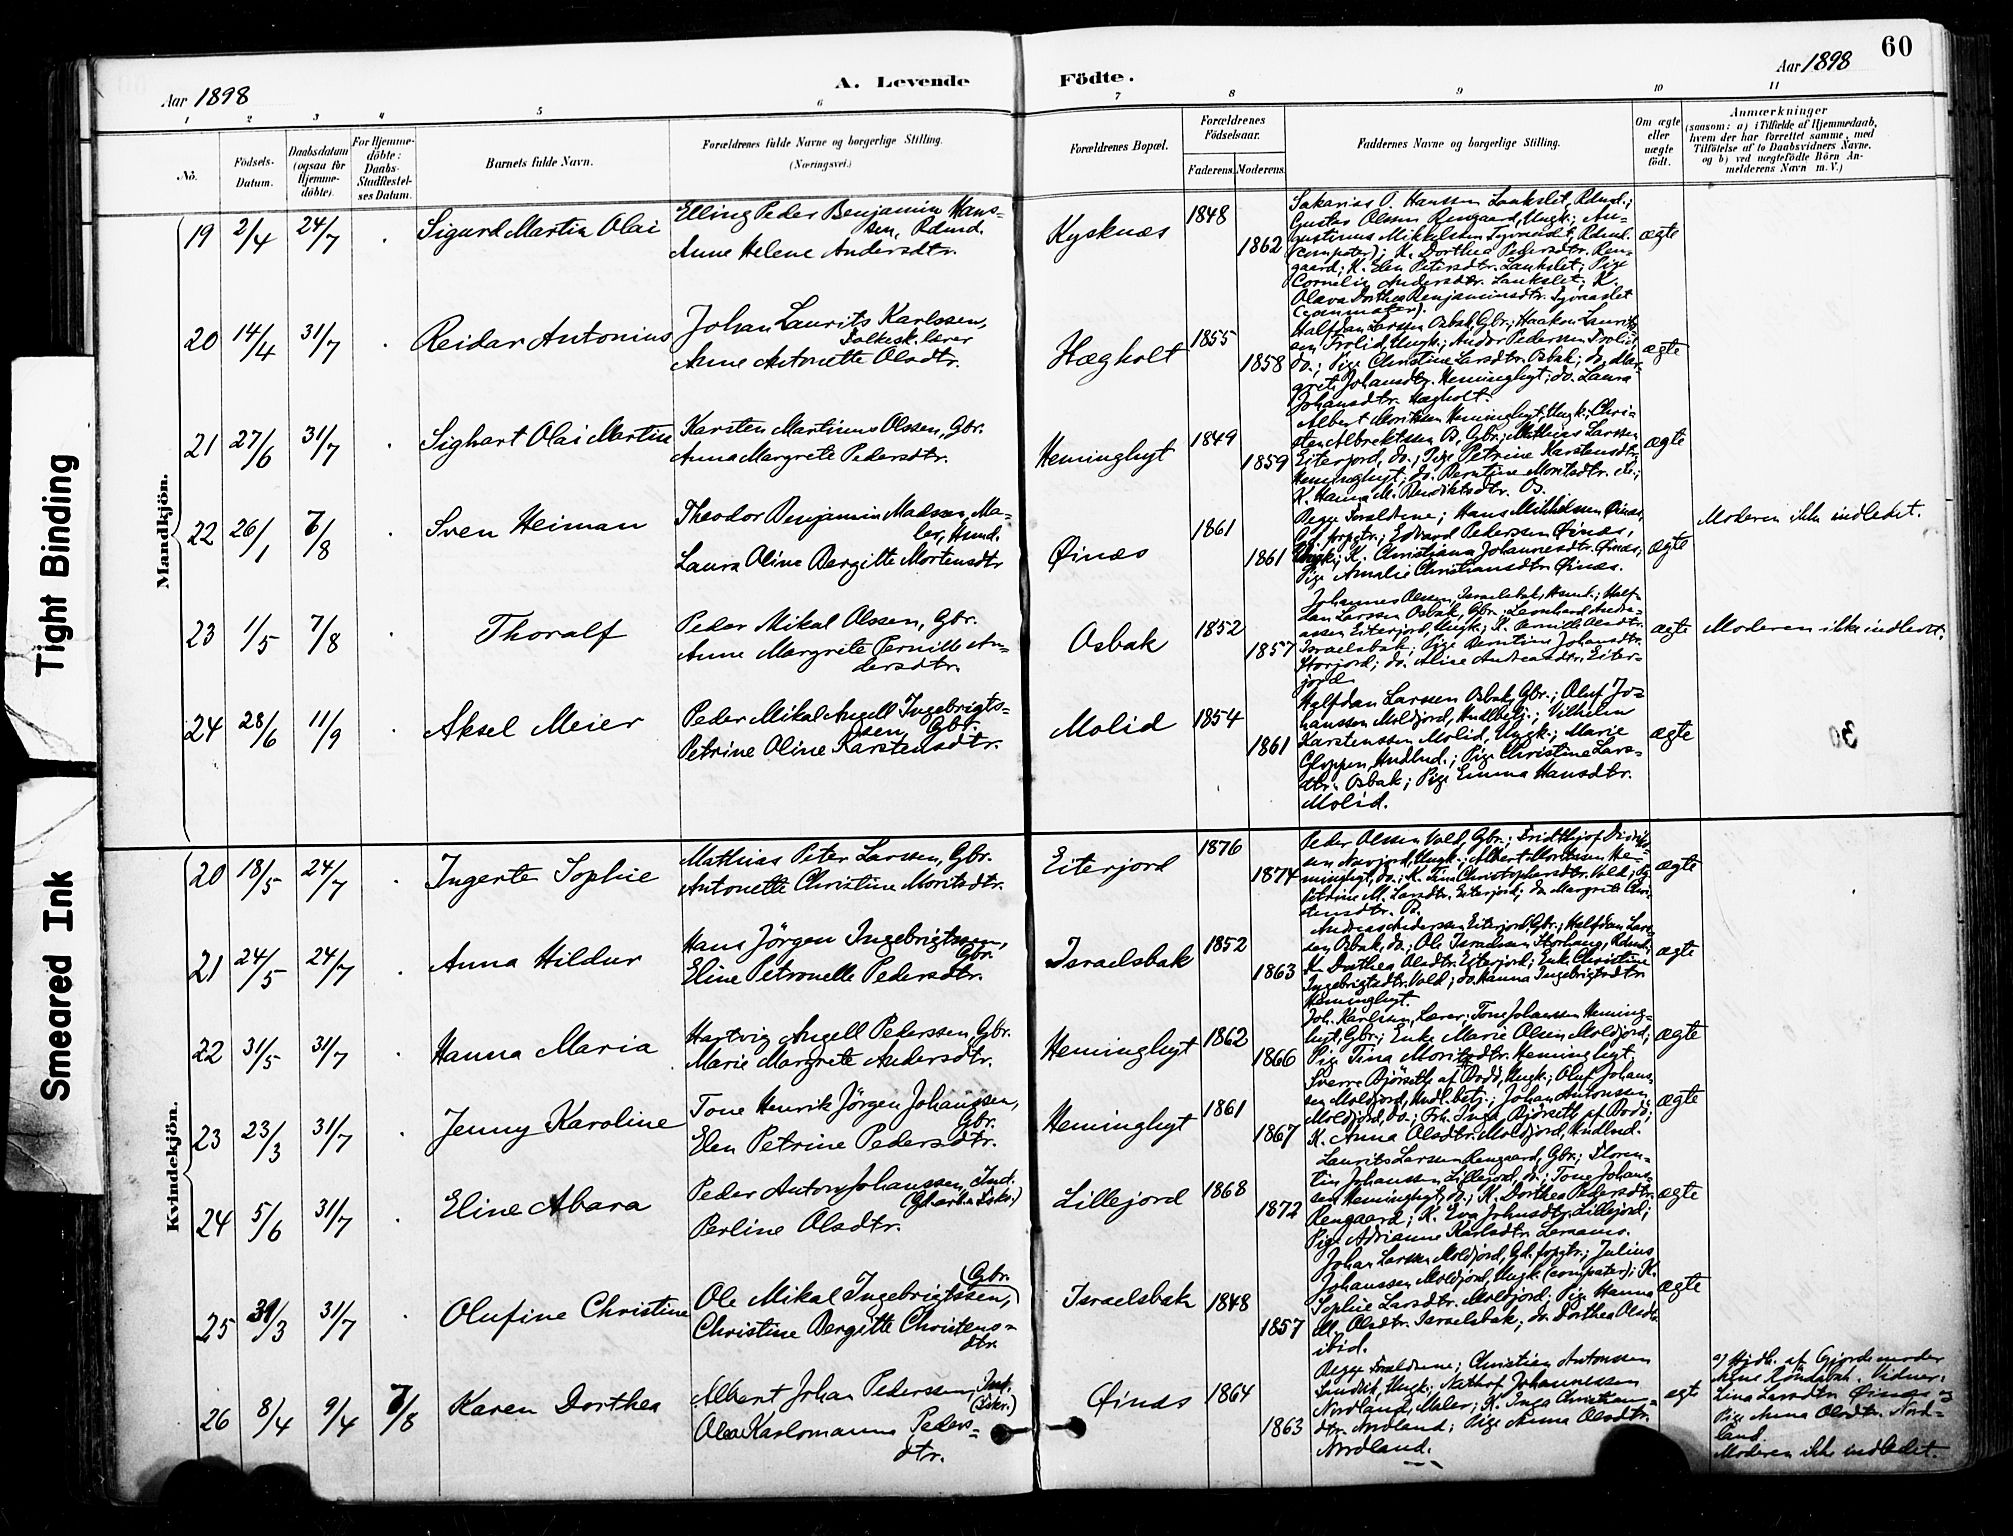 60
Aar 1898
A. Levende
Födte.
Aar 1898
1 2 3 4 5 6 7 8 9 10 11
No.
Födsels-
Datum.
Daabsdatum
(ogsaa for
Hjemme-
döbte).
For Hjemme-
döbte:
Daabs-
Stadfæstel-
ses Datum.
Barnets fulde Navn.
Forældrenes fulde Navne og borgerlige Stilling.
(Næringsvei.)
Forældrenes Bopæl.
Forældrenes
Födselsaar.
Faderens.
Moderens.
Faddernes Navne og borgerlige Stilling.
Om ægte
eller
uægte
födt.
Anmærkninger
(saasom: a) i Tilfælde af Hjemmedaab,
hvem der har forrettet samme, med
Tilföielse af to Daabsvidners Navne,
og b) ved uægtefödte Börn An-
melderens Navn m. V.)
Mandkjön.
19 2/4 24/7 Sigurd Martin Olai
Elling Peder Benjamin Hans-
sen, Rdmd.
Anne Helene Andersdtr.
Kysknæs 1848 1862
Sakarias O. Hanssen Laukslet, Rdmd.;
Gustav Olsen Rengaard, Ungk.; Au-
gustinus Mikkelsen
(compater); K. Dorthea Pedersdtr. Ren-
gaard; K. Elen Petersdtr. Laukslet; Pige
Cornelia Andersdtr. Laukslet; K.
Olava Dorthea Benjaminsdtr.
(conmater).
ægte
20 14/4 31/7 Reidar Antonius
Johan Laurits Karlssen,
Folkesk.lærer
Anne Antonette Olsdtr.
Hægholt 1855 1858
Halfdan Larsen Osbak, Gbr.; Haakon Laurits-
sen Trolid, Ungk.; Andor Pederssen Trolid,
do.; Pige Christine Larsdtr. Osbak; do. Mar-
grete Johansdtr. Heminghyt; do. Laura
Johansdtr. Hægholt.
ægte
21 27/6 31/7 Sighart Olai Martin
Karsten Martinus Olssen, Gbr.
Anna Margrete Pedersdtr.
Heminghyt 1849 1859
Albert Moritssen Heminghyt, Ungk.; Chri-
sten Albrektssen Os, Gbr.; Mathias Larssen
Eiterjord, do.; Pige Petrine Karstensdtr.
Heminghyt; do. Berntine Moritsdtr. do.;
K. Hanna M. Benediktsdtr. Os.
ægte
22 26/1 7/8 Sven Heiman
Theodor Benjamin Madssen, Ma-
ler, Hmd.
Laura Oline Bergitte Mortensdtr
Øinæs 1861 1861
Begge Forældrene; Hans Mikkelsen Øinæs,
Edvard Pederssen Øinæs,
Ungk.; K. Christiana Johannesdtr. Øinæs;
Pige Amalie Christiansdtr. Øinæs.
ægte
Moderen ikke indledet.
23 1/5 7/8 Thoralf
Peder Mikal Olssen, Gbr.
Anne Margrete Pernille An-
dersdtr.
Osbak 1852 1857
Johannes Olssen, Israelsbak, Hsmd.; Half-
dan Larssen Osbak, Gbr.; Leonhard Andre-
assen Eiterjord, Ungk.; K. Pernille Olsdtr.
Israelsbak; Pige Berntine Johansdtr.
Storjord; do. Alise Andreasdtr. Eiter-
jord
ægte
Moderen ikke indledet.
24 28/6 11/9 Aksel Meier
Peder Mikal Angell Ingebrigts-
sen, Gbr.
Petrine Oline Karstensdtr.
Molid 1854 1861
Halfdan Larssen Osbak, Gbr.; Oluf Jo-
hanssen Moldjord, Hndlbetj.; Vilhelm
Karstenssen Molid, Ungk.; Marie
Gloppen, Hndlnd.; Pige Christine Lars-
dtr. Osbak; Pige Emma Hansdtr.
Molid.
ægte
Kvindekjön.
20 18/5 24/7 Ingerte Sophie
Mathias Peter Larssen, Gbr.
Antonette Christine Moritsdtr.
Eiterjord 1876 1874
Peder Olssen Vold, Gbr.; Fridthjof
Ungk.; Albert Moritssen He-
minghyt, do.; K. Tina Christophersdtr. Vold;
Petrine M. Larsdtr. Eiterjord; do. Margrete Chri-
stensdtr. Os.
ægte
21 24/5 24/7 Anna Hildur
Hans Jörgen Ingebrigtssen,
Gbr.
Eline Petronelle Pedersdtr.
Israelsbak 1852 1863
Andreas Anderssen Eiterjord, Gbr.; Halfdan Lars-
sen Osbak, do.; Ole Israelssen Storhaug, Rdmd.;
K. Dorthea Olsdtr. Eiterjord; Enke Christine
Ingebrigtsdtr. Vold; do. Hanna Ingebrigtsdtr.
Heminghyt.
ægte
22 31/5 31/7 Hanna Maria
Hartvig Angell Pederssen, Gbr.
Marie Margrete Andersdtr.
Heminghyt 1862 1866
Joh. Karlssen, Lærer; Tone Johanssen Heming-
hyt, Gbr.; Enke Marie Olsen Moldjord;
Pige Tina Moritsdtr. Heminghyt.
ægte
23 23/3 31/7 Jenny Karoline
Tone Henrik Jörgen Johanssen,
Gbr.
Elen Petrine Pedersdtr.
Heminghyt 1861 1867
Sverre Bjørseth af Bodø, Ungk.; Oluf Johans-
sen Moldjord, Hndl.betj.; Johan Antonsen
Moldjord, do.; Frk. Inga Bjørseth af Bodø;
K. Anna Olsdtr. Moldjord, Hndlnd.
ægte
24 5/6 31/7 Eline Abara
Peder Anton Johanssen, Ind.
Perline Olsdtr.
Lillejord 1868 1872
Laurits Larssen Rengaard, Gbr.; Floren-
tin Johanssen Lillejord, do.; Tone Johans-
sen Heminghyt, do.; K. Dorthea Pedersdtr.
Rengaard; K. Eva Johnsdtr. Lillejord;
Pige Adrianne Karlsdtr.
ægte
25 31/3 31/7 Olufine Christine
Ole Mikal Ingebrigtssen,
(Gbr.)
Christine Bergitte Christens-
dtr.
Israelsbak 1848 1857
Johan Larssen Moldjord, Julius
Johanssen Moldjord, Ungk. (compater); K.
Sophie Larsdtr. Moldjord; Pige Hanna
M. Olsdtr. Israelsbak; do. Dorthea Olsdtr.
ibid.
ægte
26 8/4 9/4 7/8 Karen Dorthea
Albert Johan Pederssen, Ind.
(Fisker.)
Olea Karlomanna Peders-
dtr.
Øinæs 1864 1863
Begge Forældrene; Christian Antonssen
Sandvik, Ungk.; Johannessen
Nordland, Maler; K. Inga Christians-
dtr. Nordland; Pige Anna Olsdtr.
Nordland.
ægte
a) Hjdb. af Gjordemoder
Vidner:
Lina Larsdtr. Øinæs og
Pige Anna Olsdtr. Nord-
land.
Moderen ikke indledet.
Tight Binding
Smeared Ink